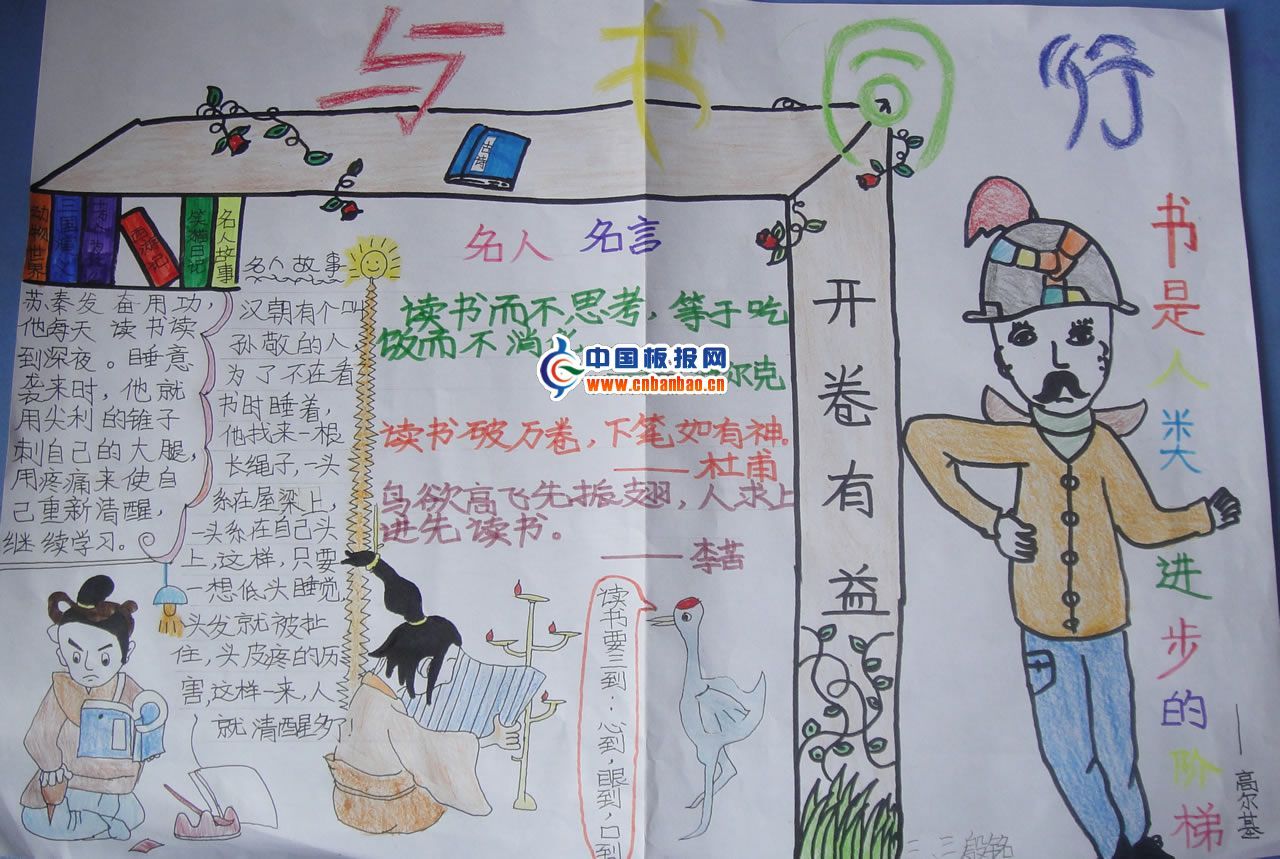 与书同行
古诗
动物世界
三国演义
西游记
笑猫日记
名人故事
名人故事
苏秦发奋用功,
他每天读书读
到深夜。睡意
袭来时,他就
用尖利的锥子
刺自己的大腿,
用疼痛来使自
己重新清醒,
继续学习。
汉朝有个叫
孙敬的人,
为了不在看
书时睡着,
他找来一根
长绳子,一头
系在屋梁上,
一头系在自己头
上,这样,只要
一想低头睡觉,
头发就被扯
住,头皮疼的历
害,这样一来,人
就清醒多了!
名人名言
读书而不思考,等于吃
饭而不消
尔克
读书破万卷,下笔如有神。
——杜甫
鸟欲高飞先振翅,人求上
进先读书。
——李苦
读书要三到:心到,眼到,口到
开卷有益
书是人类进步的阶梯
——高尔基
三、三 殷铭
中国板报网
www.cnbanbao.cn